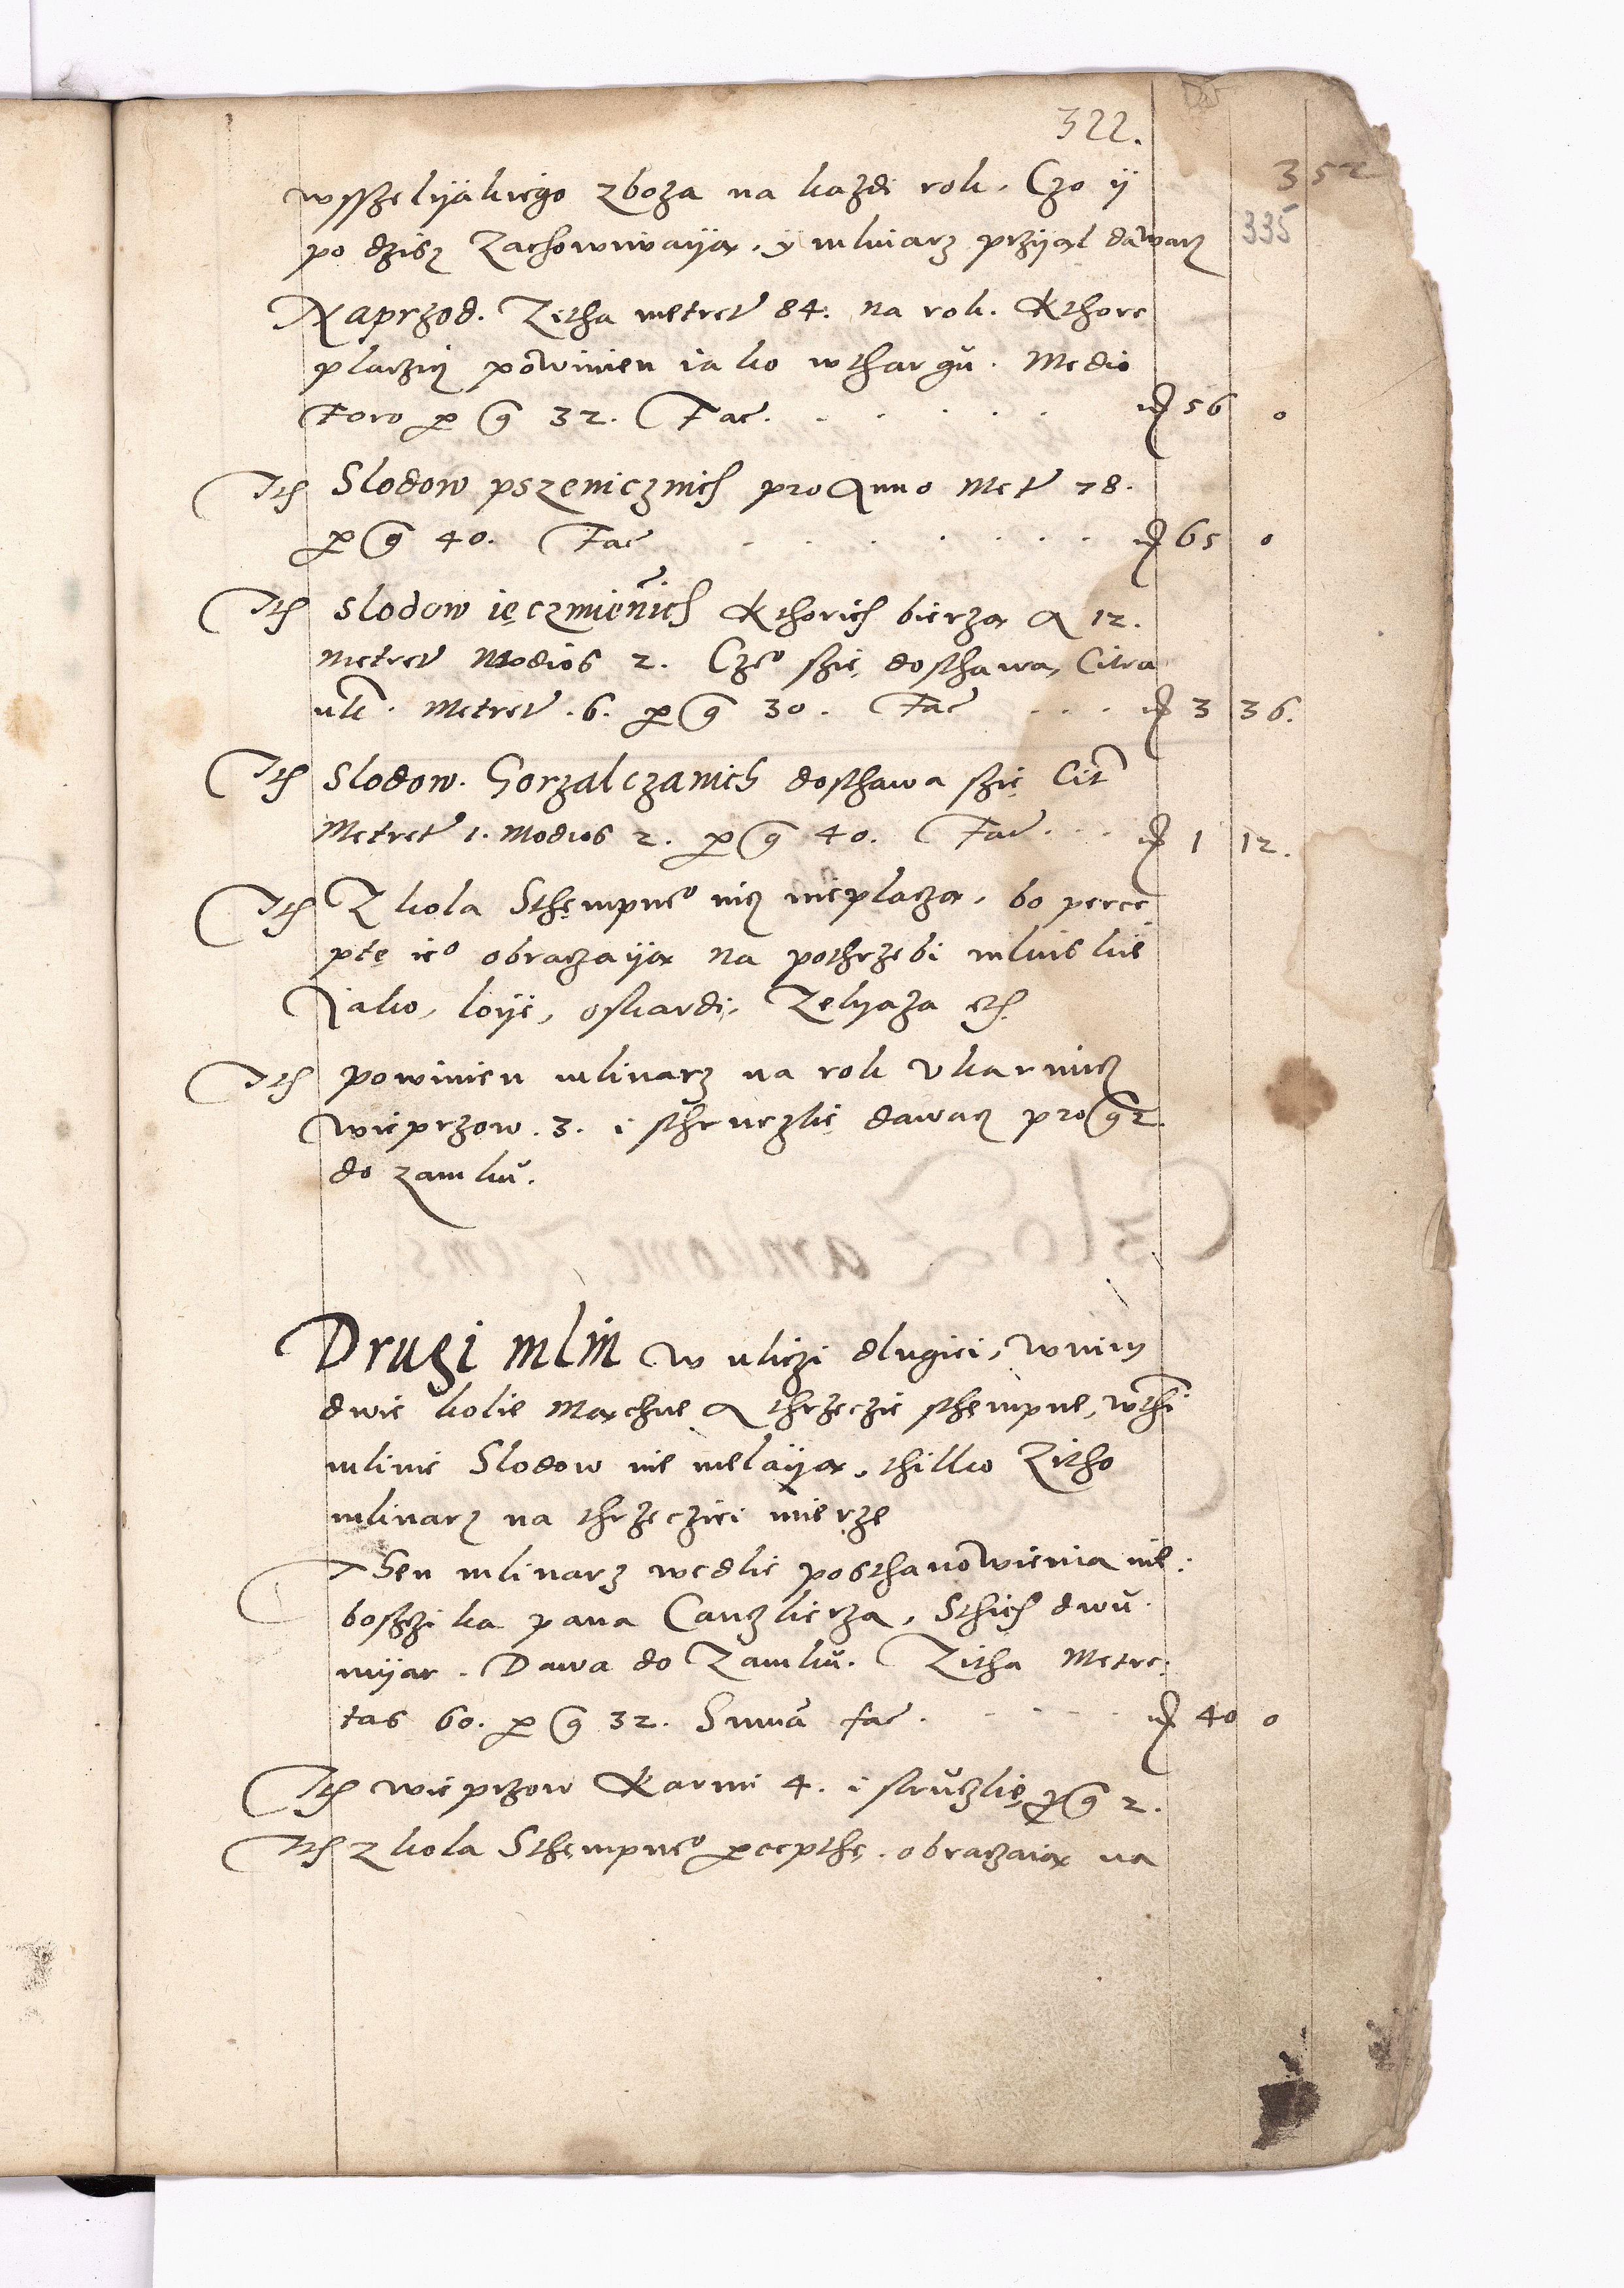 322.
352
335
wsszelÿakiego zboza na kazdi rok. Czo ÿ
po dzisz Zachowuwaÿa. y mlinarz przÿal dawacz
Naprzod. Zitha metret 84. na rok. Kthore
placzicz powinien iako wthargu. Medio
Foro per g 32. Fac. . . . . . 56 0
Ith Slodow psenicznich pro Anno Met 78.
per g 40. Fac . . . . . . 65 0
Ith slodow ięczmienich Kthorich bierza A 12.
metret Modios 2. Cze° szie dosthawa, Citra
. Metret .6. per g 30. Fac . . . 3 36.
Ith Slodow. Gorzalczanich dosthawa szie Cit
Metret 1. Modios 2. per g 40. Fac . . . 1 12.
Ith Z kola Sthempne° nicz nieplacza. bo perce
ptę ie° obraczaÿa na pothrzebi mlinskie
Jako, loÿe, oskardi, Zelyaza etc.
Ith powinien mlinarz na rok vkarmicz
wieprzow .3. i sthruczlie dawacz pro g 2.
do zamku.
Drugi mlin w uliczi dlugiei, wnim
dwie kolie Mączne A thrzeczie sthempne, wthi
mlinie Slodow nie melaÿa, thilko Zitho
mlinarz na thrzecziei mierze
Then mlinarz wedlie posthanowienia nie:
boszczika pana Canczlierza, Sthich dwu
miar. Dawa do Zamku. Zitha Metre:
tas 60. per g 32. Suma fac. . . . . 40 0
Ith wieprzow Karmi 4. i struczlię per g 2.
Ith z kola Sthempne° percepthę. obraczaia na